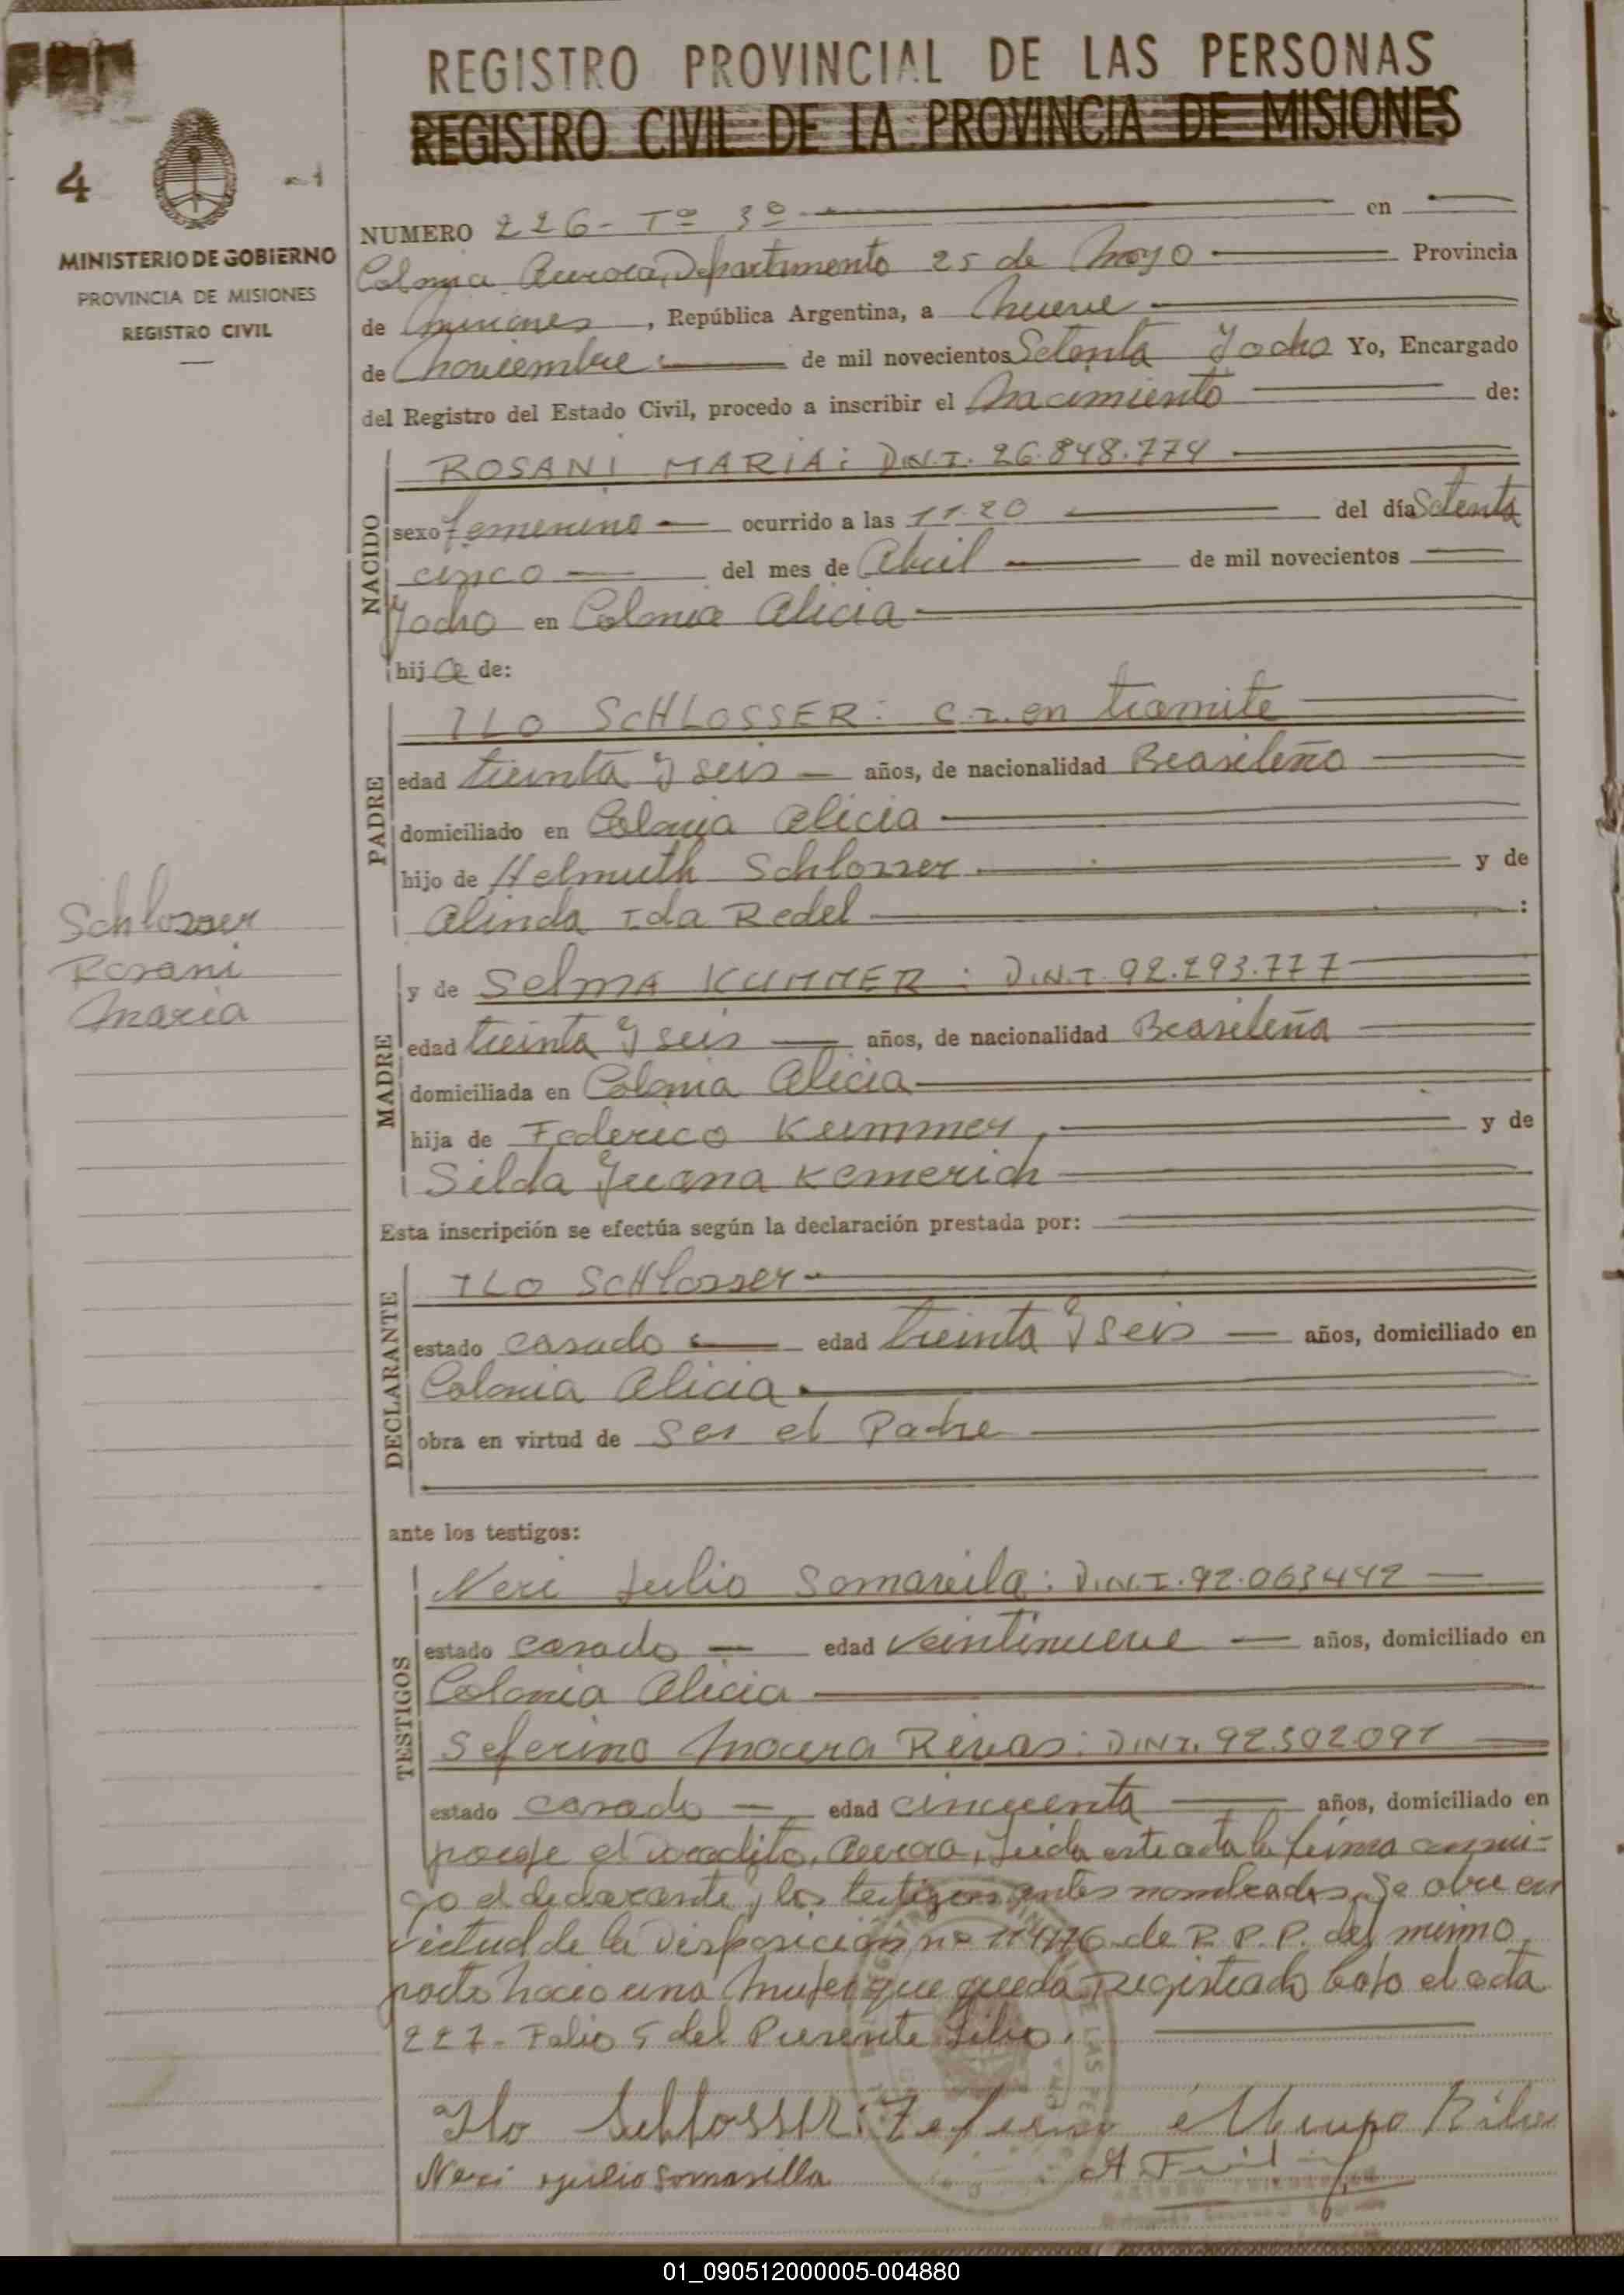 REGISTRO PROVINCIAL DE LAS PERSONAS
REGISTRO CIVIL DE LA PROVINCIA DE MISIONES
4
MINISTERIO DE GOBIERNO
PROVINCIA DE MISIONES
REGISTRO CIVIL
NUMERO 226- Tº 3º en
Colonia Aurora, Departamento 25 de Mayo Provincia
de Misiones, República Argentina, a Nueve
de Noviembre de mil novecientos Setenta y ocho Yo, Encargado
del Registro del Estado Civil, procedo a inscribir el Nacimiento de:
NACIDO
ROSANI MARIA: D.N.I. 26.848.774
sexo femenino ocurrido a las 11.20 del día Setenta
cinco del mes de Abril de mil novecientos
y ocho en Colonia Alicia
hija de:
PADRE
ILO SCHLOSSER: C.I. en tramite
edad treinta y seis años, de nacionalidad Brasileño
domiciliado en Colonia Alicia
hijo de Helmuth Schlosser y de
Alinda Ida Redel :
Schlosser
Rosani
Maria
MADRE
y de Selma KUMMER: D.N.I. 92.293.777
edad treinta y seis años, de nacionalidad Brasileña
domiciliada en Colonia Alicia
hija de Federico Kummer, y de
Silda Juana Kemerich
Esta inscripción se efectúa según la declaración prestada por:
DECLARANTE
ILO SCHlosser
estado casado edad treinta y seis años, domiciliado en
Colonia Alicia
obra en virtud de Ser el Padre
ante los testigos:
TESTIGOS
Neri Julio Somavila: D.N.I. 92.063442
estado casado edad veintinueve años, domiciliado en
Colonia Alicia
Seferino Moura Rivas: D.N.I. 92.302.091
estado casado edad cincuenta años, domiciliado en
Aurora, Leida este acta la firma conmi-
go el declarante y los testigos antes nombrados, Se obre en
virtud de la Disposición nº de R.P.P. del mismo
parto nacio una Mujer que queda registrado bajo el acta
227- Folio 5 del Presente Libro.
Ilo Schlosser
Neri Julio Somavilla
01_090512000005-004880